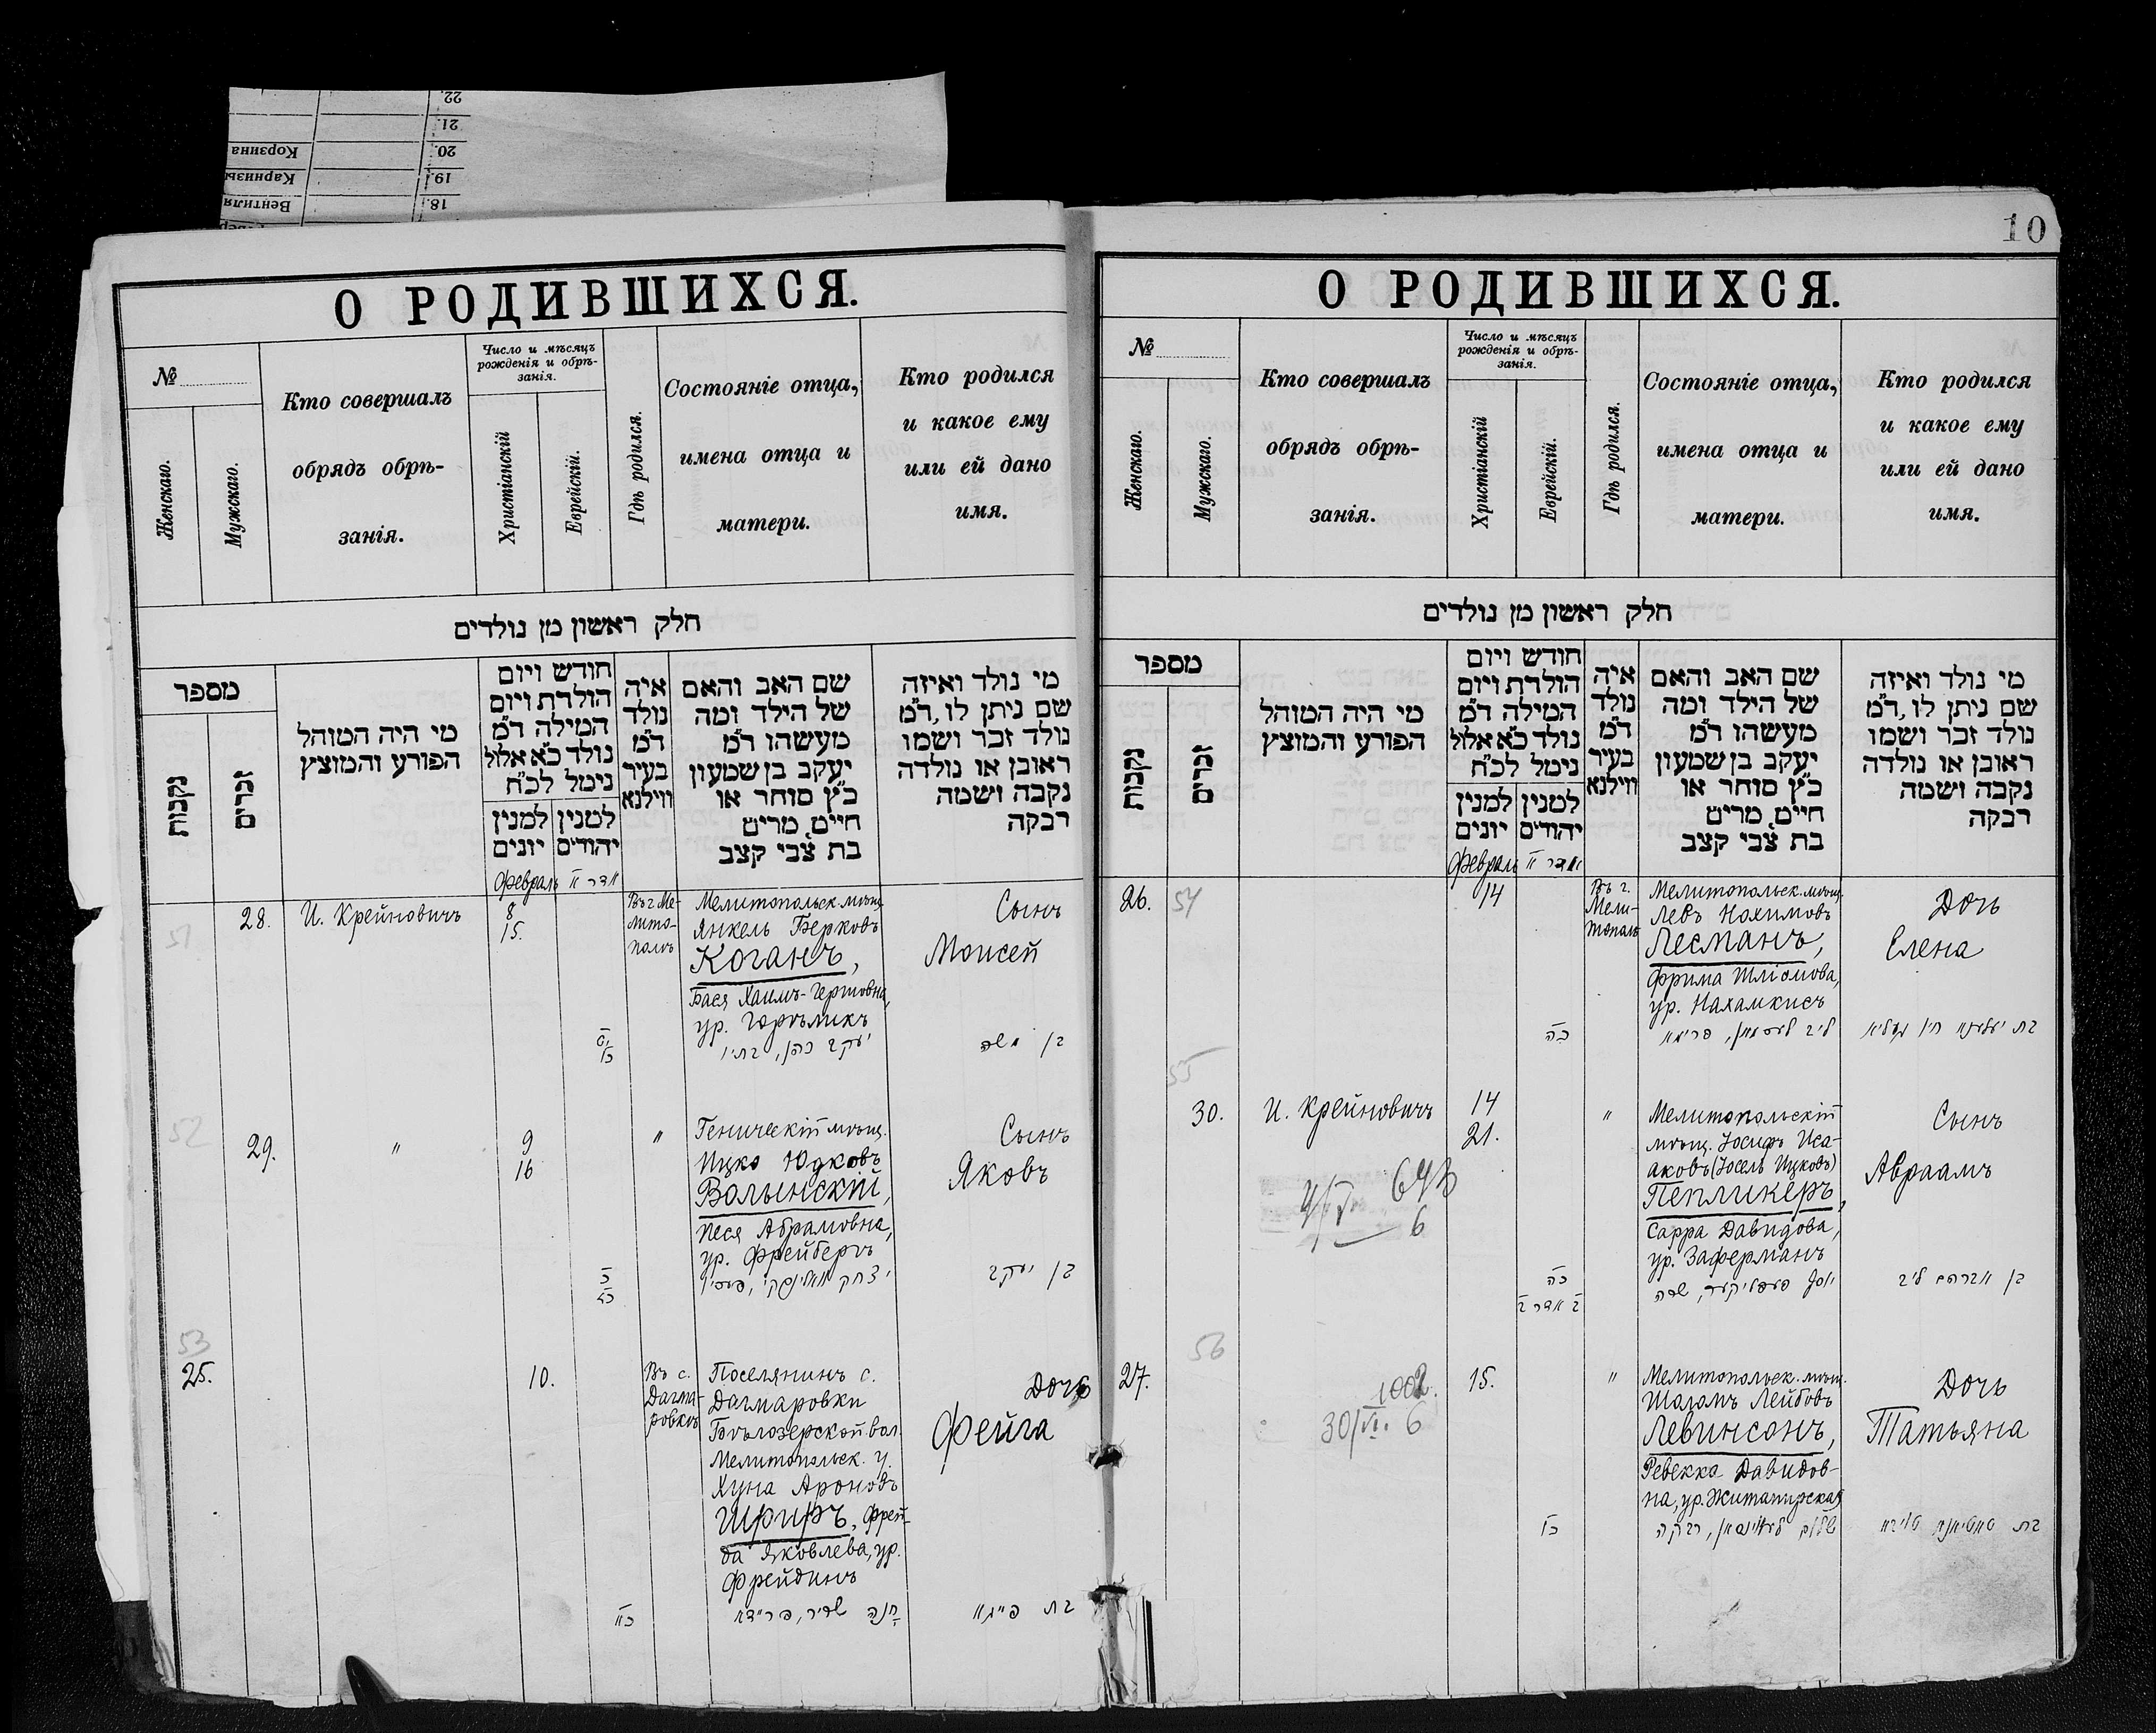 22.
21.
20. Корзина
19. Карнизы
18. Вентиля
О РОДИВШИХСЯ.
№
Женскаго.
Мужскаго.
Кто совершалъ
обрядъ обрѣ-
занія.
Число и мѣсяцъ
рожденія и обрѣ-
занія.
Христіанскій
Еврейскій.
Гдѣ родился.
Состояніе отца,
имена отца и
матери.
Кто родился
и какое ему
или ей дано
имя.
חלק ראשון מן נולדים
מספר
נקבות
זכרים
מי היה המוהל
הפורע והמוצץ
חודש ויום
הולדת ויום
המילה ד״מ
נולד כ״א אלול
נימל לכ״ח
למנין
יונים
למנין
יהודים
איה
נולד
ד״מ
בעיר
ווילנא
שם האב והאם
של הילד ומה
מעשהו ד״מ
יעקב בן שמעון
כ״ץ סוחר או
חייט, מרים
בת צבי קצב
מי נולד ואיזה
שם ניתן לו, ד״מ
נולד זכר ושמו
ראובן או נולדה
נקבה ושמה
רבקה
Февраль
אדר א
51
28.
И. Крейновичъ
8
15.
Въ г. Ме-
лито-
полѣ
Мелитопольск. мѣщ.
Янкель Берковъ
Коганъ,
Бася Хаимъ-Гершовна,
ур. Горѣликъ
יעקב כהן, בתיו
Сынъ
Моисей
בן משה
52
29.
"
9
16
"
Геническій мѣщ.
Ицко Юдковъ
Волынскій,
Песя Абрамовна,
ур. Фрейбергъ
Сынъ
Яковъ
בן יעקב
53
25.
10.
Въ с.
Дагма-
ровкѣ
Поселянинъ с.
Дагмаровки
Бѣлозерской вол.
Мелитопольск. у.
Хуна Ароновъ
Шрифъ, Фрей-
да Яковлева, ур.
Фрейдинъ
Дочь
Фейга
בת פייגא
10
О РОДИВШИХСЯ.
№
Женскаго.
Мужскаго.
Кто совершалъ
обрядъ обрѣ-
занія.
Число и мѣсяцъ
рожденія и обрѣ-
занія.
Христіанскій
Еврейскій.
Гдѣ родился.
Состояніе отца,
имена отца и
матери.
Кто родился
и какое ему
или ей дано
имя.
חלק ראשון מן נולדים
מספר
נקבות
זכרים
מי היה המוהל
הפורע והמוצץ
חודש ויום
הולדת ויום
המילה ד״מ
נולד כ״א אלול
נימל לכ״ח
למנין
יונים
למנין
יהודים
איה
נולד
ד״מ
בעיר
ווילנא
שם האב והאם
של הילד ומה
מעשהו ד״מ
יעקב בן שמעון
כ״ץ סוחר או
חייט, מרים
בת צבי קצב
מי נולד ואיזה
שם ניתן לו, ד״מ
נולד זכר ושמו
ראובן או נולדה
נקבה ושמה
רבקה
Февраль
אדר א
26.
54
14
Въ г.
Мели-
тополѣ
Мелитопольск. мѣщ.
Левъ Нохимовъ
Лесманъ,
Фрима Шліомова,
ур. Нахамкисъ
ליב לעסמאן, פרימא
Дочь
Елена
כה
55
30.
И. Крейновичъ
14
21.
"
Мелитопольскій
мѣщ. Іосифъ Иса-
аковъ (Іосель Ицковъ)
Пепликеръ,
Сарра Давидова,
ур. Заферманъ
יוסף פעפליקער, שרה
Сынъ
Авраамъ
בן אברהם ליב
כה
ב אדר ב
56
27.
1002.
30/VI. 6
15.
"
Мелитопольск. мѣщ.
Шоломъ Лейбовъ
Левинсонъ,
Ревекка Давидов-
на, ур. Житомирская
שלום לעווינסאן, רבקה
Дочь
Татьяна
כו